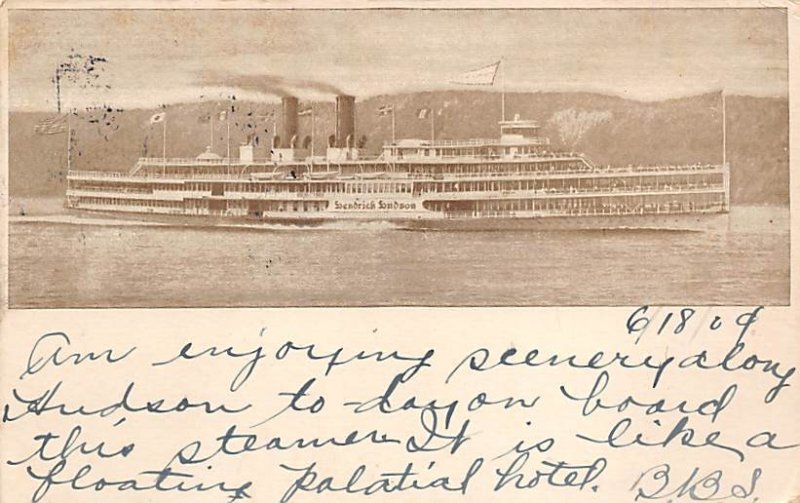 Hendrick Hudson
6/18/09
Am enjoying scenery along
Hudson to-day on board
this steamer It is like a
floating palatial hotel. B.B.S.